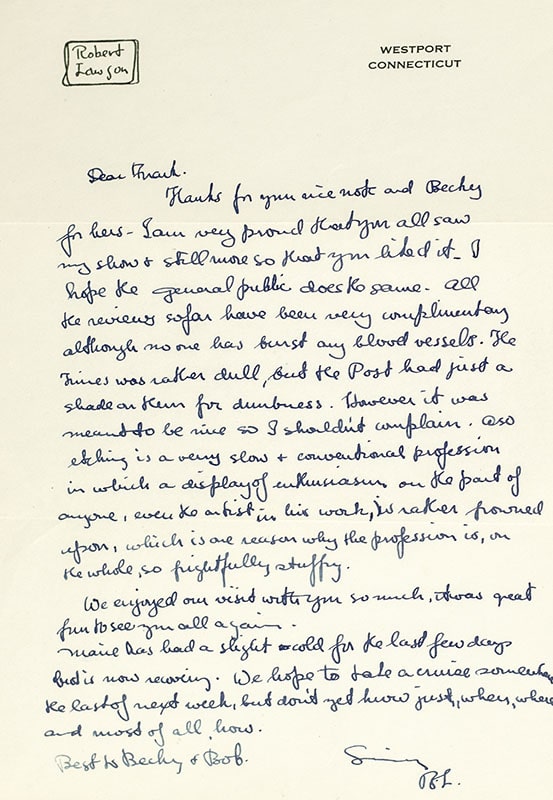 Robert
Lawson
WESTPORT
CONNECTICUT
Dear Frank.
Thanks for your nice note and Becky
for hers - I am very proud that you all saw
my show & still more so that you liked it - I
hope the general public does the same. All
the reviews so far have been very complimentary
although no one has burst any blood vessels. The
Times was rather dull, but the Post had just a
shade on them for dumbness. However it was
meant to be nice so I shouldn't complain. Also
etching is a very slow & conventional profession
in which a display of enthusiasm on the part of
anyone, even the artist in his work, is rather frowned
upon, which is one reason why the profession is, on
the whole, so frightfully stuffy.
We enjoyed our visit with you so much, it was great
fun to see you all again.
Marie has had a slight cold for the last few days
but is now
We hope to take a cruise somewhere
the last of next week, but don't yet know just, when, where
and most of all, how.
Best to Becky & Bob.
R.L.